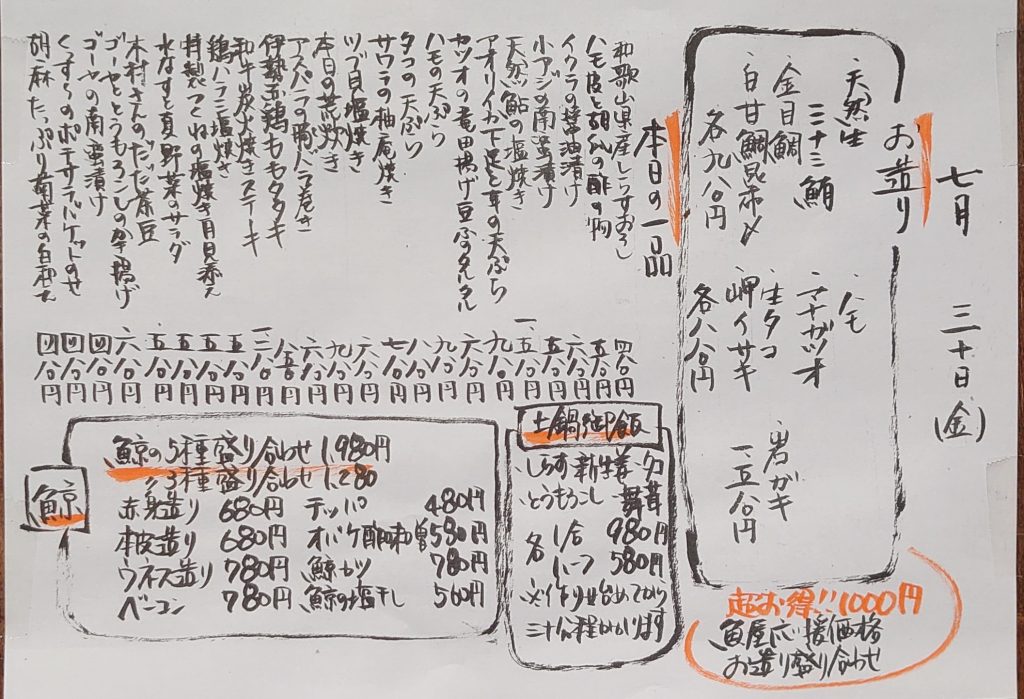 七月 三十日(金)
お造り
天然生
三十三鮪
金目鯛
白甘鯛昆布〆
各九八〇円
ハモ
マナガツオ
生タコ
岬イサキ
各八八〇円
岩ガキ
一五八〇円
超お得!!1000円
魚屋応援価格
お造り盛り合わせ
本日の一品
和歌山県産しらすおろし 四八〇円
ハモ皮と胡瓜の酢の物 五八〇円
イクラの醤油漬け 六八〇円
小アジの南蛮漬け 五八〇円
天然鮎の塩焼き 一、五八〇円
アオリイカ下足と耳の天ぷら 九八〇円
カツオの竜田揚げ豆ふのタルタル 六八〇円
ハモの天ぷら 九八〇円
タコの天ぷら 八八〇円
サワラの柚庵焼き 七八〇円
ツブ貝塩焼き 六八〇円
本日の荒炊き 九八〇円
アスパラの鴨バラ巻き 六八〇円
伊勢玉鶏ももタタキ 八五〇円
和牛炭火焼きステーキ
鶏ハラミ塩焼き 五八〇円
特製つくねの塩焼き月見添え 五八〇円
水なすと夏野菜のサラダ 五八〇円
木村さんのだだ茶豆 五八〇円
ゴーヤととうもろこしのかき揚げ 六八〇円
ゴーヤの南蛮漬け 四八〇円
くずしのポテサラバケットのせ 四八〇円
胡麻たっぷり菊菜の白和え 四八〇円
土鍋御飯
・しらす新生姜
・とうもろこし
舞茸
各 1合 980円
ハーフ 580円
※作り始めてから
三十分程かかります
鯨
鯨の5種盛り合わせ 1,980円
〃3種盛り合わせ 1,280
赤身造り 680円
本皮造り 680円
ウネス造り 780円
ベーコン 780円
テッパ 480円
オバケ酢味噌 580円
鯨カツ 780円
鯨の塩干し 560円